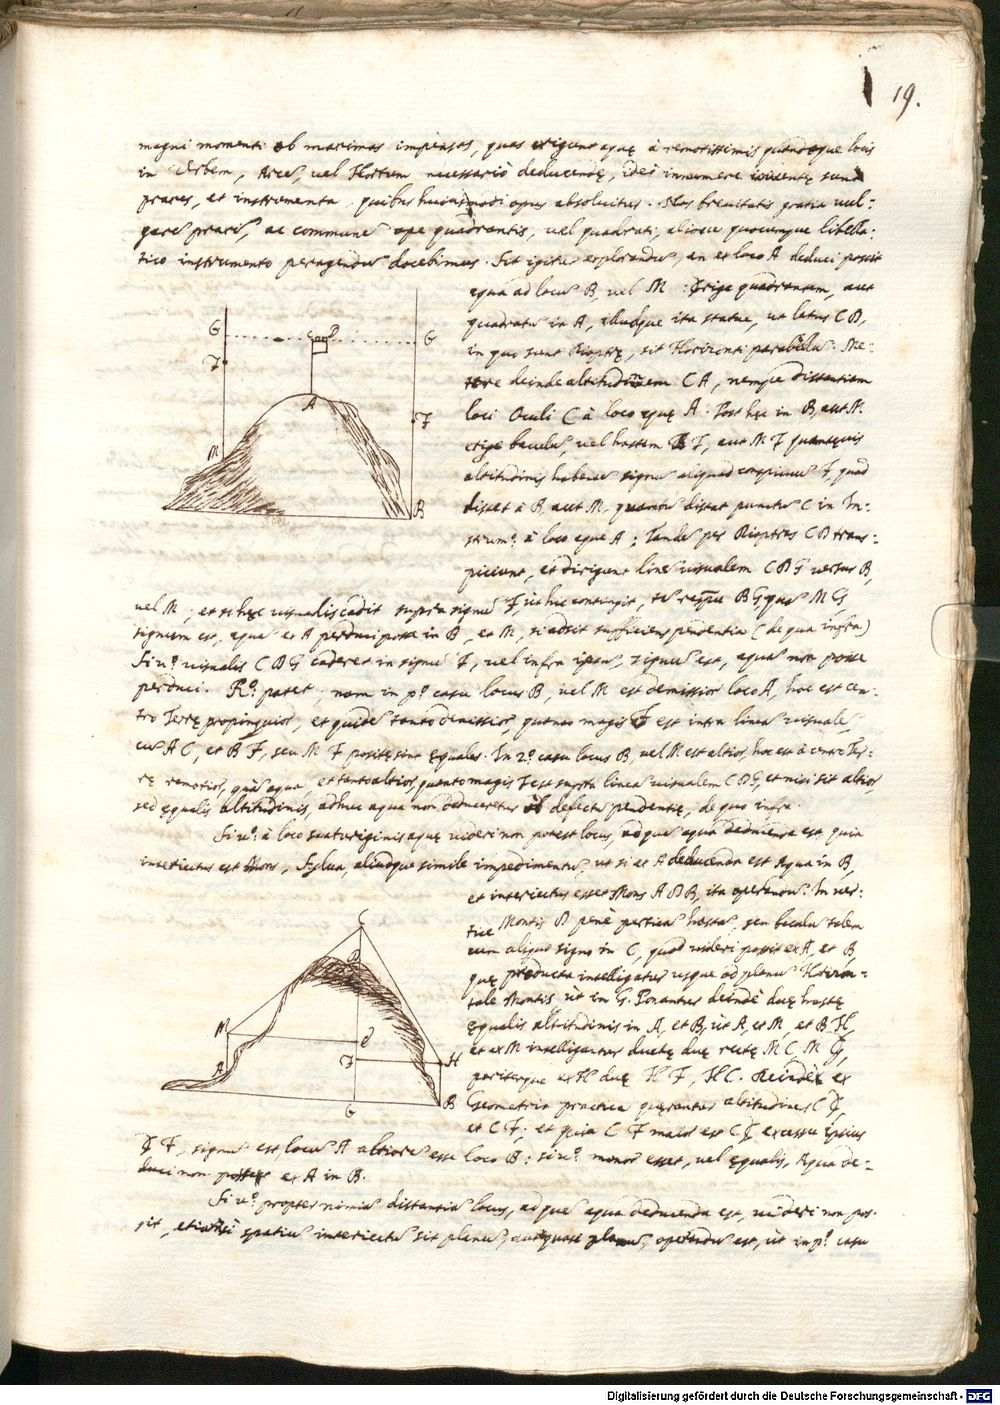 19.
magni momenti ob maximas impensas, quas exigunt aquę à remotissimis quandoque locis
in Urbem, Arcē, vel Hortum necessariò deducendę, ideò innumerę
praxes, et instrumenta, quibus huiusmodi opus absolvitur. Nos brevitatis gratia vul-
garē praxī, ac communē ope quadrantis, vel quadrati, aliove quocumque libella-
tico instrumento peragendā docebimus. Sit igitur explorandū, an ex loco A deduci possit
aqua ad locū B, vel M. Erige quadrantem, aut
quadratū in A, illudque ita statue, ut latus CD,
in quo sunt Dioptrę, sit Horizonti parallelū. Me-
tire deinde altitudinem CA, nempe distantiam
loci Oculi C à loco aquę A. Post hęc in B, aut M.
erige baculū, vel hastam BF, aut MF quamvis
altitudinis habens signū aliquod conspicuū F, quod
distet à B, aut M, quantū distat punctū C in In-
strumᵒ. à loco aquę A; Tandē per Dioptras CD trans-
piciens, et dirigens lineā visualem CDG versus B,
vel M; et si hęc visualis cadit supra signū F, ut hic contingit, BG, MG
signum est, aquā ex A perduci posse in B, et M, si adsit sufficiens pendentia (de qua infra)
Si vᵒ. visualis CDG caderet in signū F, vel infra ipsū, signū est, aquā non posse
perduci. Rᵒ. patet; nam in pᵒ. casu locus B, vel M est demissior loco A, hoc est cen-
tro Terrę propinquior, et quidē tanto demissior, quanto magis F est infra lineā visualē,
cū AC, et BF, seu MF positę sint ęquales. In 2ᵒ. casu locus B, vel M est altior, hoc est à centro Ter-
rę remotior, quā aqua, et tanto altior, quanto magis F est supra lineā visualem CDG, et nisi sit altior
sed ęqualis altitudinis, adhuc aqua non deduceretur ob defectū pendentię, de quo infra.
Si vᵒ. à loco scaturiginis aquę videri non potest locus, ad quē aqua deducenda est, quia
interiectus est Mons, Sylva, aliudque simile impedimentū, ut si ex A deducenda est Aqua in B,
et interiectus esset Mons ADB, ita operandū. In ver-
tice Montis D ponè perticā hastā, seu baculū talem
cum aliquo signo in C, quod videri possit ex A, et B,
quę producta intelligatur usque ad planū Horizon-
tale Montis, ut in G. Ponantur deindè duę hastę
ęqualis altitudinis in A, et B, ut A, et M, et BH,
et ex M intelligantur ductę duę rectę MC, ME,
pariterque ex H duę HF, HC. Deindè ex
Geometria practica quęrantur altitudines CE,
et CF; et quia CF maior est CE excessu ipsius
EF, signū est locū A altiorē esse loco B; si vᵒ. minor esset, vel ęqualis, Aqua de-
duci non posset ex A in B.
Si vᵒ. propter nimiā distantiā locus, ad quē aqua deducenda est, videri non pos-
sit, etiamsi spatiū interiectū sit planū, aut quasi planū, operandū est, ut in pᵒ. casu
G
C
D
G
F
A
F
M
B
C
D
M
E
F
H
A
G
B
Digitalisierung gefördert durch die Deutsche Forschungsgemeinschaft - DFG